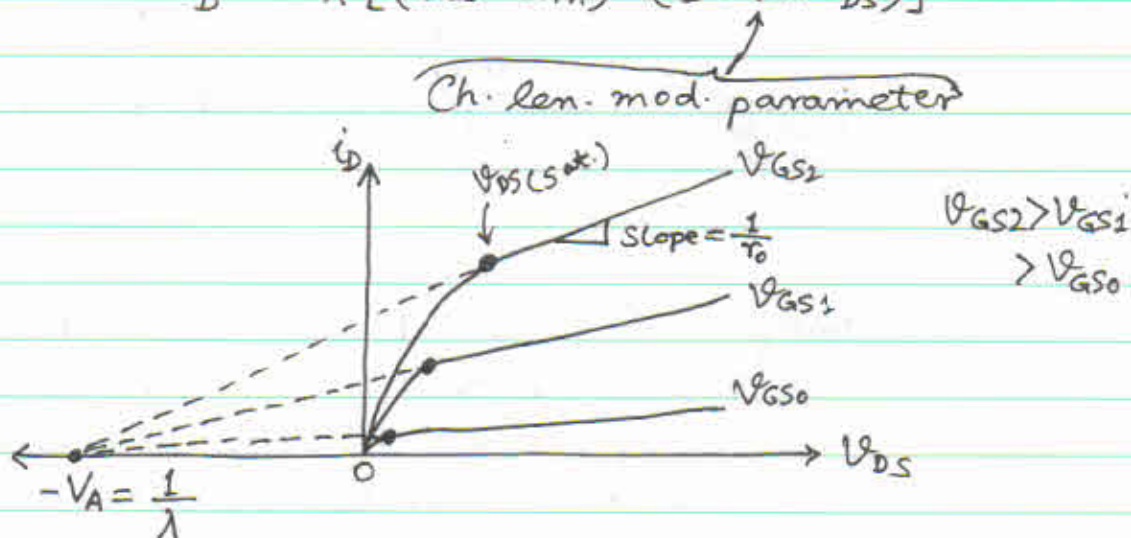 Ch. len. mod. parameter
i_D
v_DS(sat.)
v_GS2
Slope = 1/r_0
v_GS2 > v_GS1
> v_GS0
v_GS1
v_GS0
0
V_DS
-V_A = 1/λ